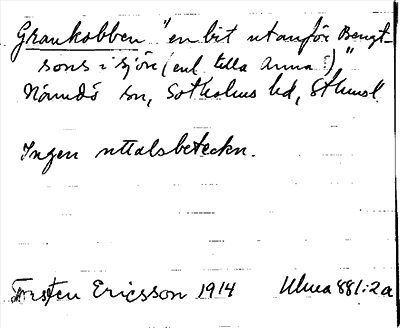 Grankobben "en bit utanför Bengt-
sons i sjön (enl. lilla Anna:)"
Nämdö sn, Sotholms hd, Sthmsl.
Ingen uttalsbeteckn.
Torsten Ericsson 1914 Ulma 881:2a